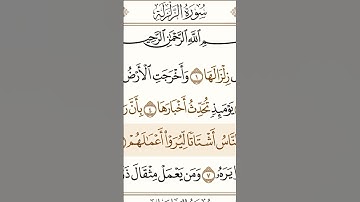 سُورَةُ الزَّلْزَلَةِ
ـمِ ٱللَّهِ ٱلرَّحْمَٰنِ ٱلرَّحِيمِ
زِلْزَالَهَا ١ وَأَخْرَجَتِ ٱلْأَرْضُ
يَوْمَئِذٍ تُحَدِّثُ أَخْبَارَهَا ٤ بِأَنَّ رَ
لنَّاسُ أَشْتَاتًا لِّيُرَوْا۟ أَعْمَٰلَهُمْ
يَرَهُۥ ٧ وَمَن يَعْمَلْ مِثْقَالَ ذَ